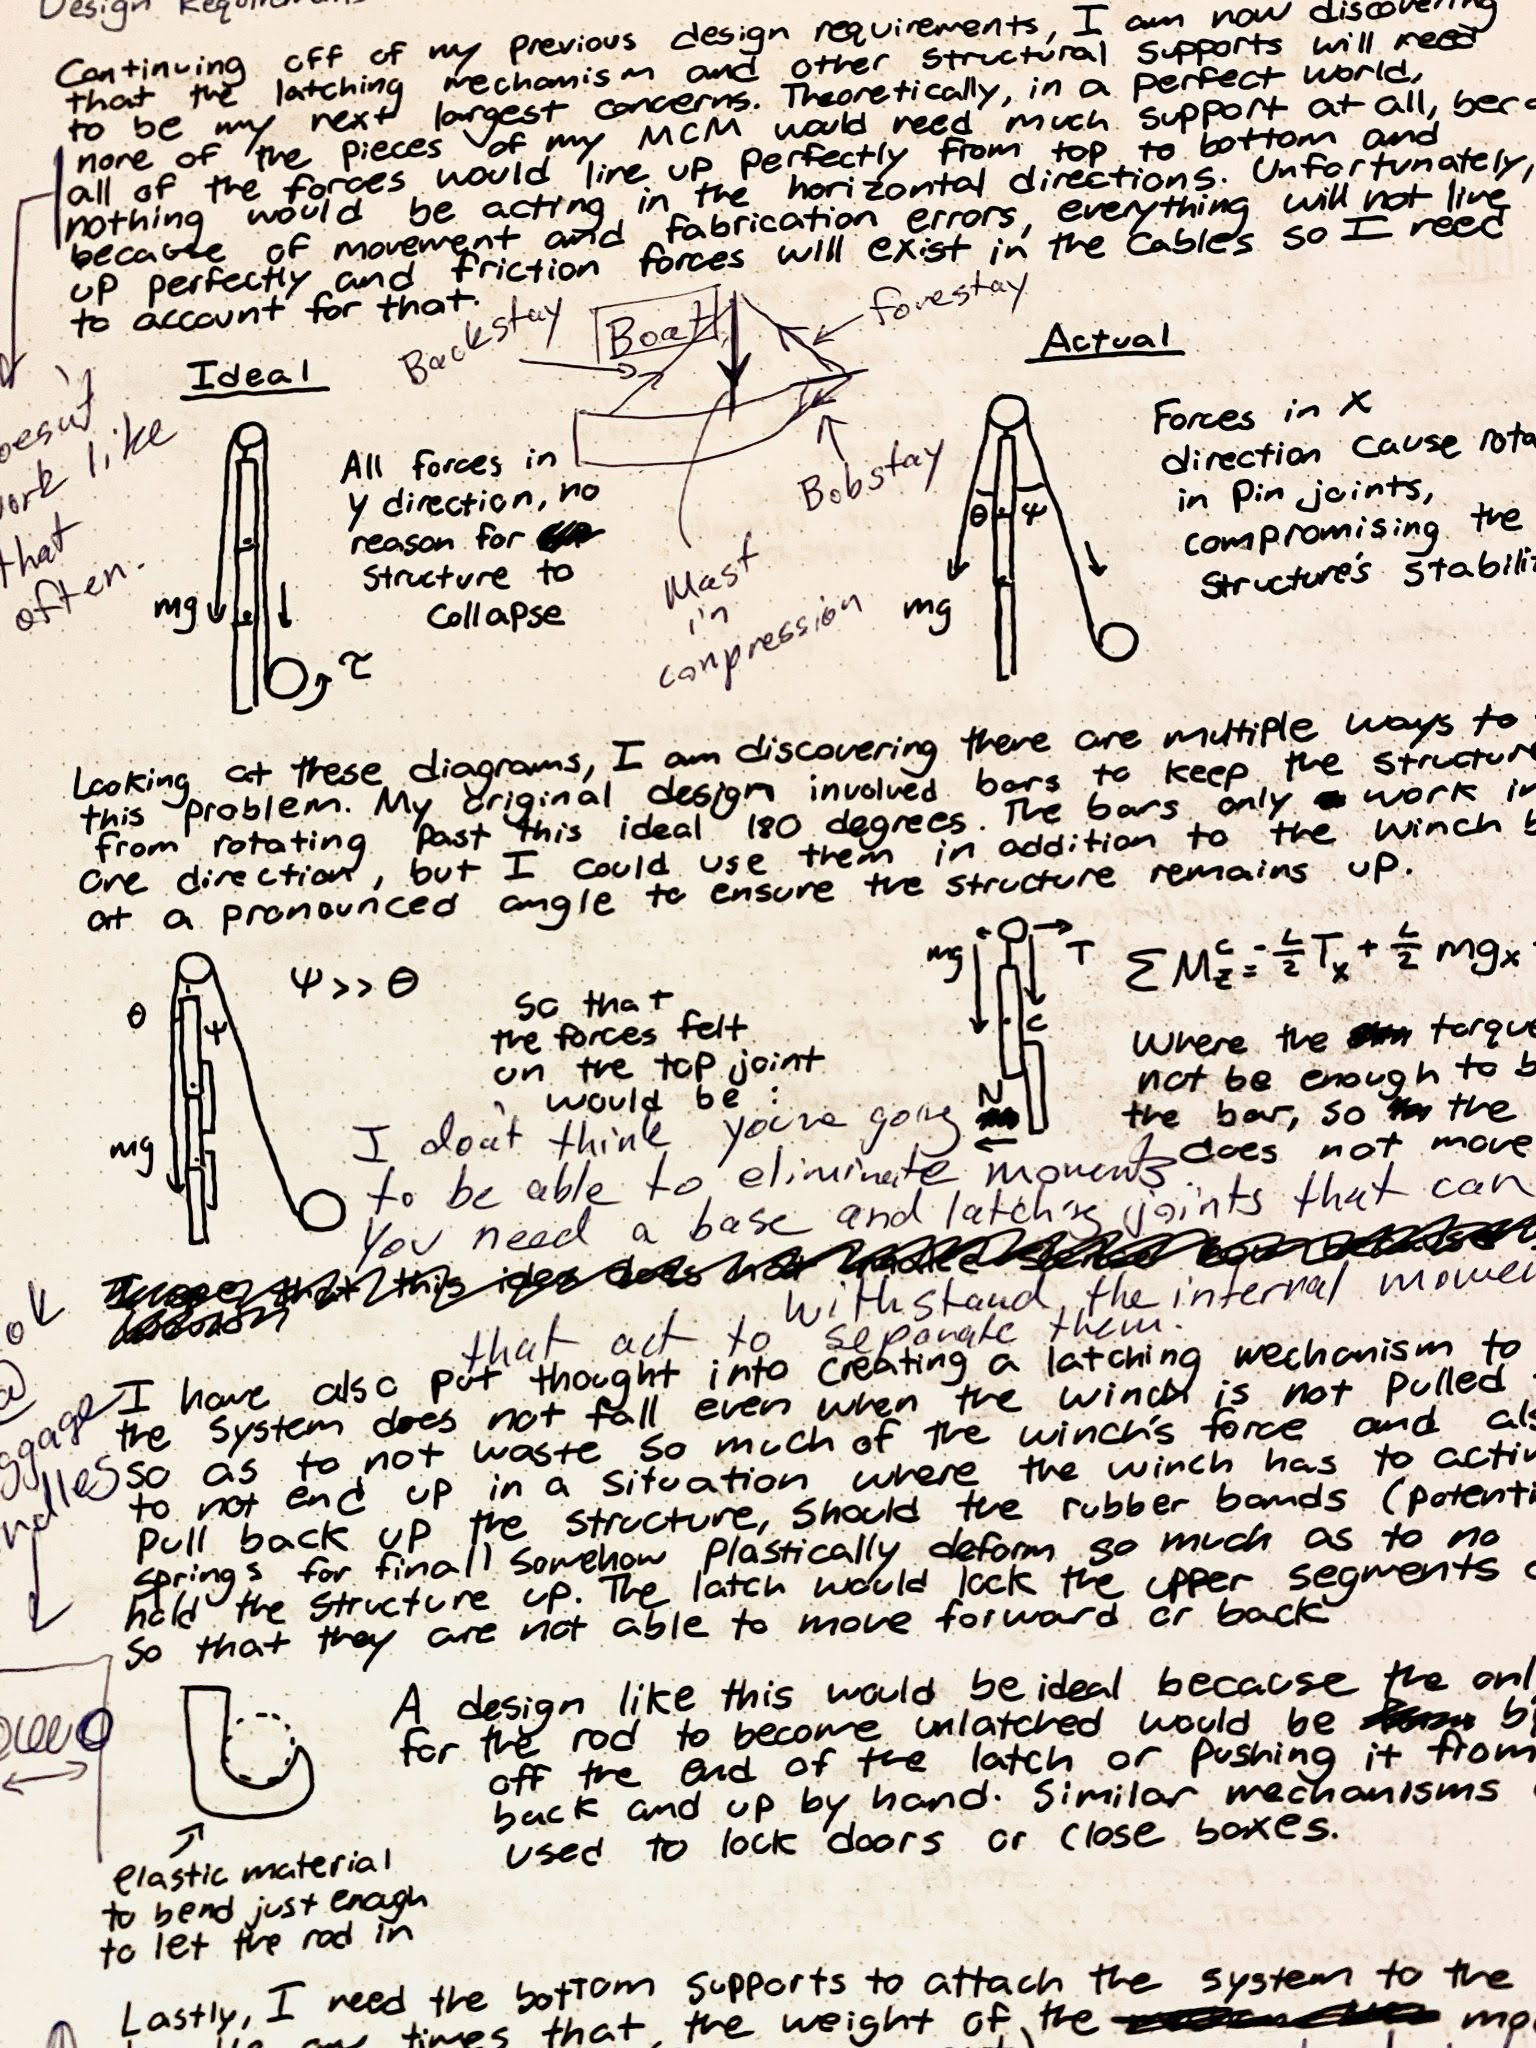 Design Requirements
Continuing off of my previous design requirements, I am now discovering
that the latching mechanism and other structural supports will need
to be my next largest concerns. Theoretically, in a perfect world,
none of the pieces of my MCM would need much support at all, beca
all of the forces would line up perfectly from top to bottom and
nothing would be acting in the horizontal directions. Unfortunately,
because of movement and fabrication errors, everything will not line
up perfectly and friction forces will exist in the cables so I need
to account for that.
oesn't
ork like
that
often.
Ideal
All forces in
y direction, no
reason for
structure to
collapse
mg
τ
Boat
Backstay
forestay
Bobstay
Mast
in
compression
Actual
θ ψ
mg
Forces in X
direction cause rota
in pin joints,
compromising the
structure's stabilit
Looking at these diagrams, I am discovering there are multiple ways to
this problem. My original design involved bars to keep the structure
from rotating past this ideal 180 degrees. The bars only work in
one direction, but I could use them in addition to the winch b
at a pronounced angle to ensure the structure remains up.
θ ψ
mg
ψ >> θ
so that
the forces felt
on the top joint
would be:
mg T
C
N
ΣM_z^c = -L/2 T_x + L/2 mg_x
Where the torque
not be enough to b
the bar, so the
does not move
I don't think you're going
to be able to eliminate moments.
You need a base and latching joints that can
withstand the internal momen
that act to separate them.
I have also put thought into creating a latching mechanism to
the system does not fall even when the winch is not pulled
so as to not waste so much of the winch's force and als
to not end up in a situation where the winch has to activ
pull back up the structure, should the rubber bands (potenti
springs for final) somehow plastically deform so much as to no
hold the structure up. The latch would lock the upper segments
so that they are not able to move forward or back
ook
@
ggage
ndles
A design like this would be ideal because the onl
for the rod to become unlatched would be by
off the end of the latch or pushing it from
back and up by hand. Similar mechanisms
used to lock doors or close boxes.
elastic material
to bend just enough
to let the rod in
Lastly, I need the bottom supports to attach the system to the
times that the weight of the